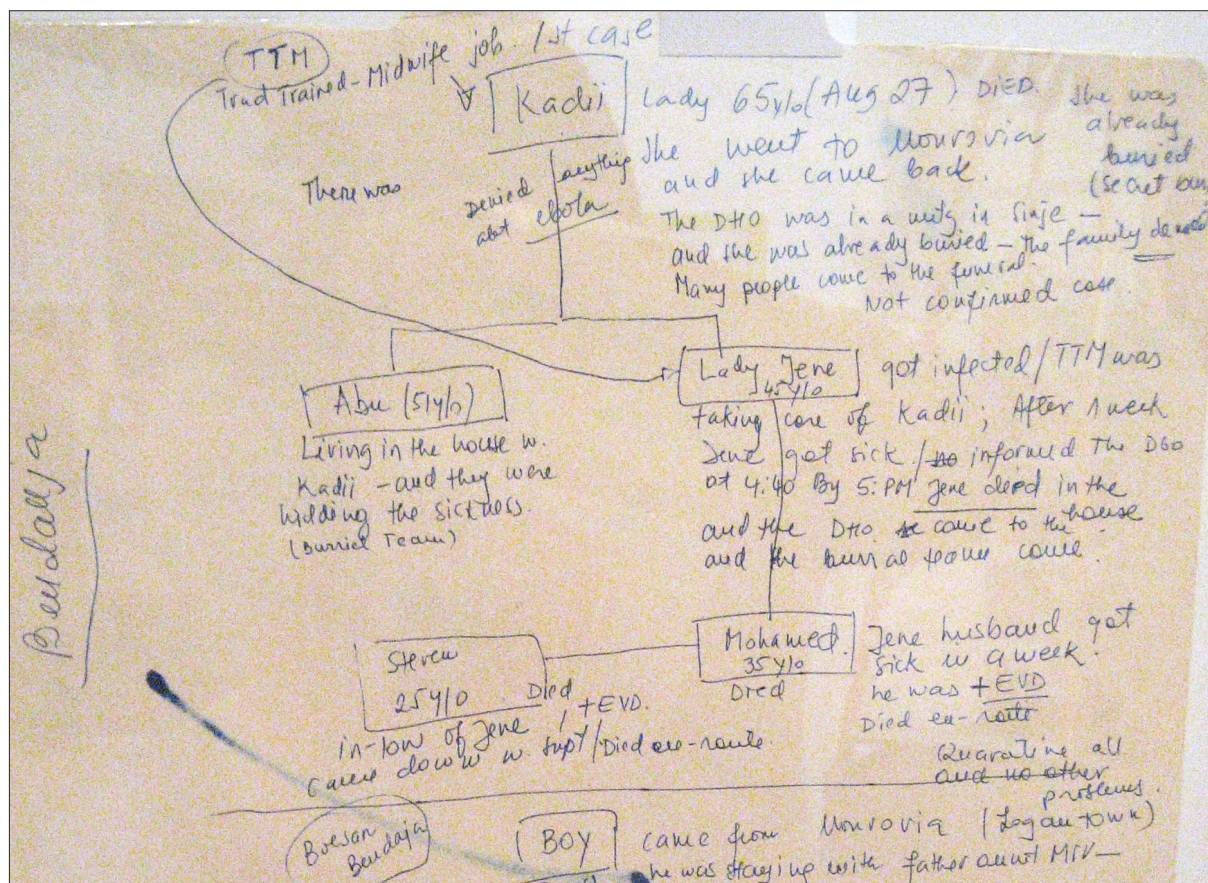 TTM
Trad Trained-Midwife job. 1st case
Kadii
Lady 65y/o (Aug 27) DIED. She was
already
buried
(Secret
She went to Monrovia
and she came back.
There was
Denied anything
abt ebola
The DHO was in a mtg in Sinje —
and she was already buried — the family
Many people come to the funeral.
Not confirmed case.
Abu (51y/o)
Living in the house w.
Kadii - and they were
hidding the sickness.
(Burriel Team)
Lady Jene
45y/o
got infected / TTM was
taking care of Kadii; After 1 week
Jene got sick / informed The
at 4:40 By 5:PM Jene died in the
house
and the DHO. come to the
and the burrial team come.
Bendallya
Steven
25Y/0 Died
in-low of Jene / +EVD.
came down w. sypt / Died en-route.
Mohamed.
35 Y/o
Died
Jene husband got
sick in a week.
he was + EVD
Died en-route
Quaratine all
and no other
problems.
Boesan
Bendaja
BOY
came from Monrovia (Logan town)
he was staying with father aunt